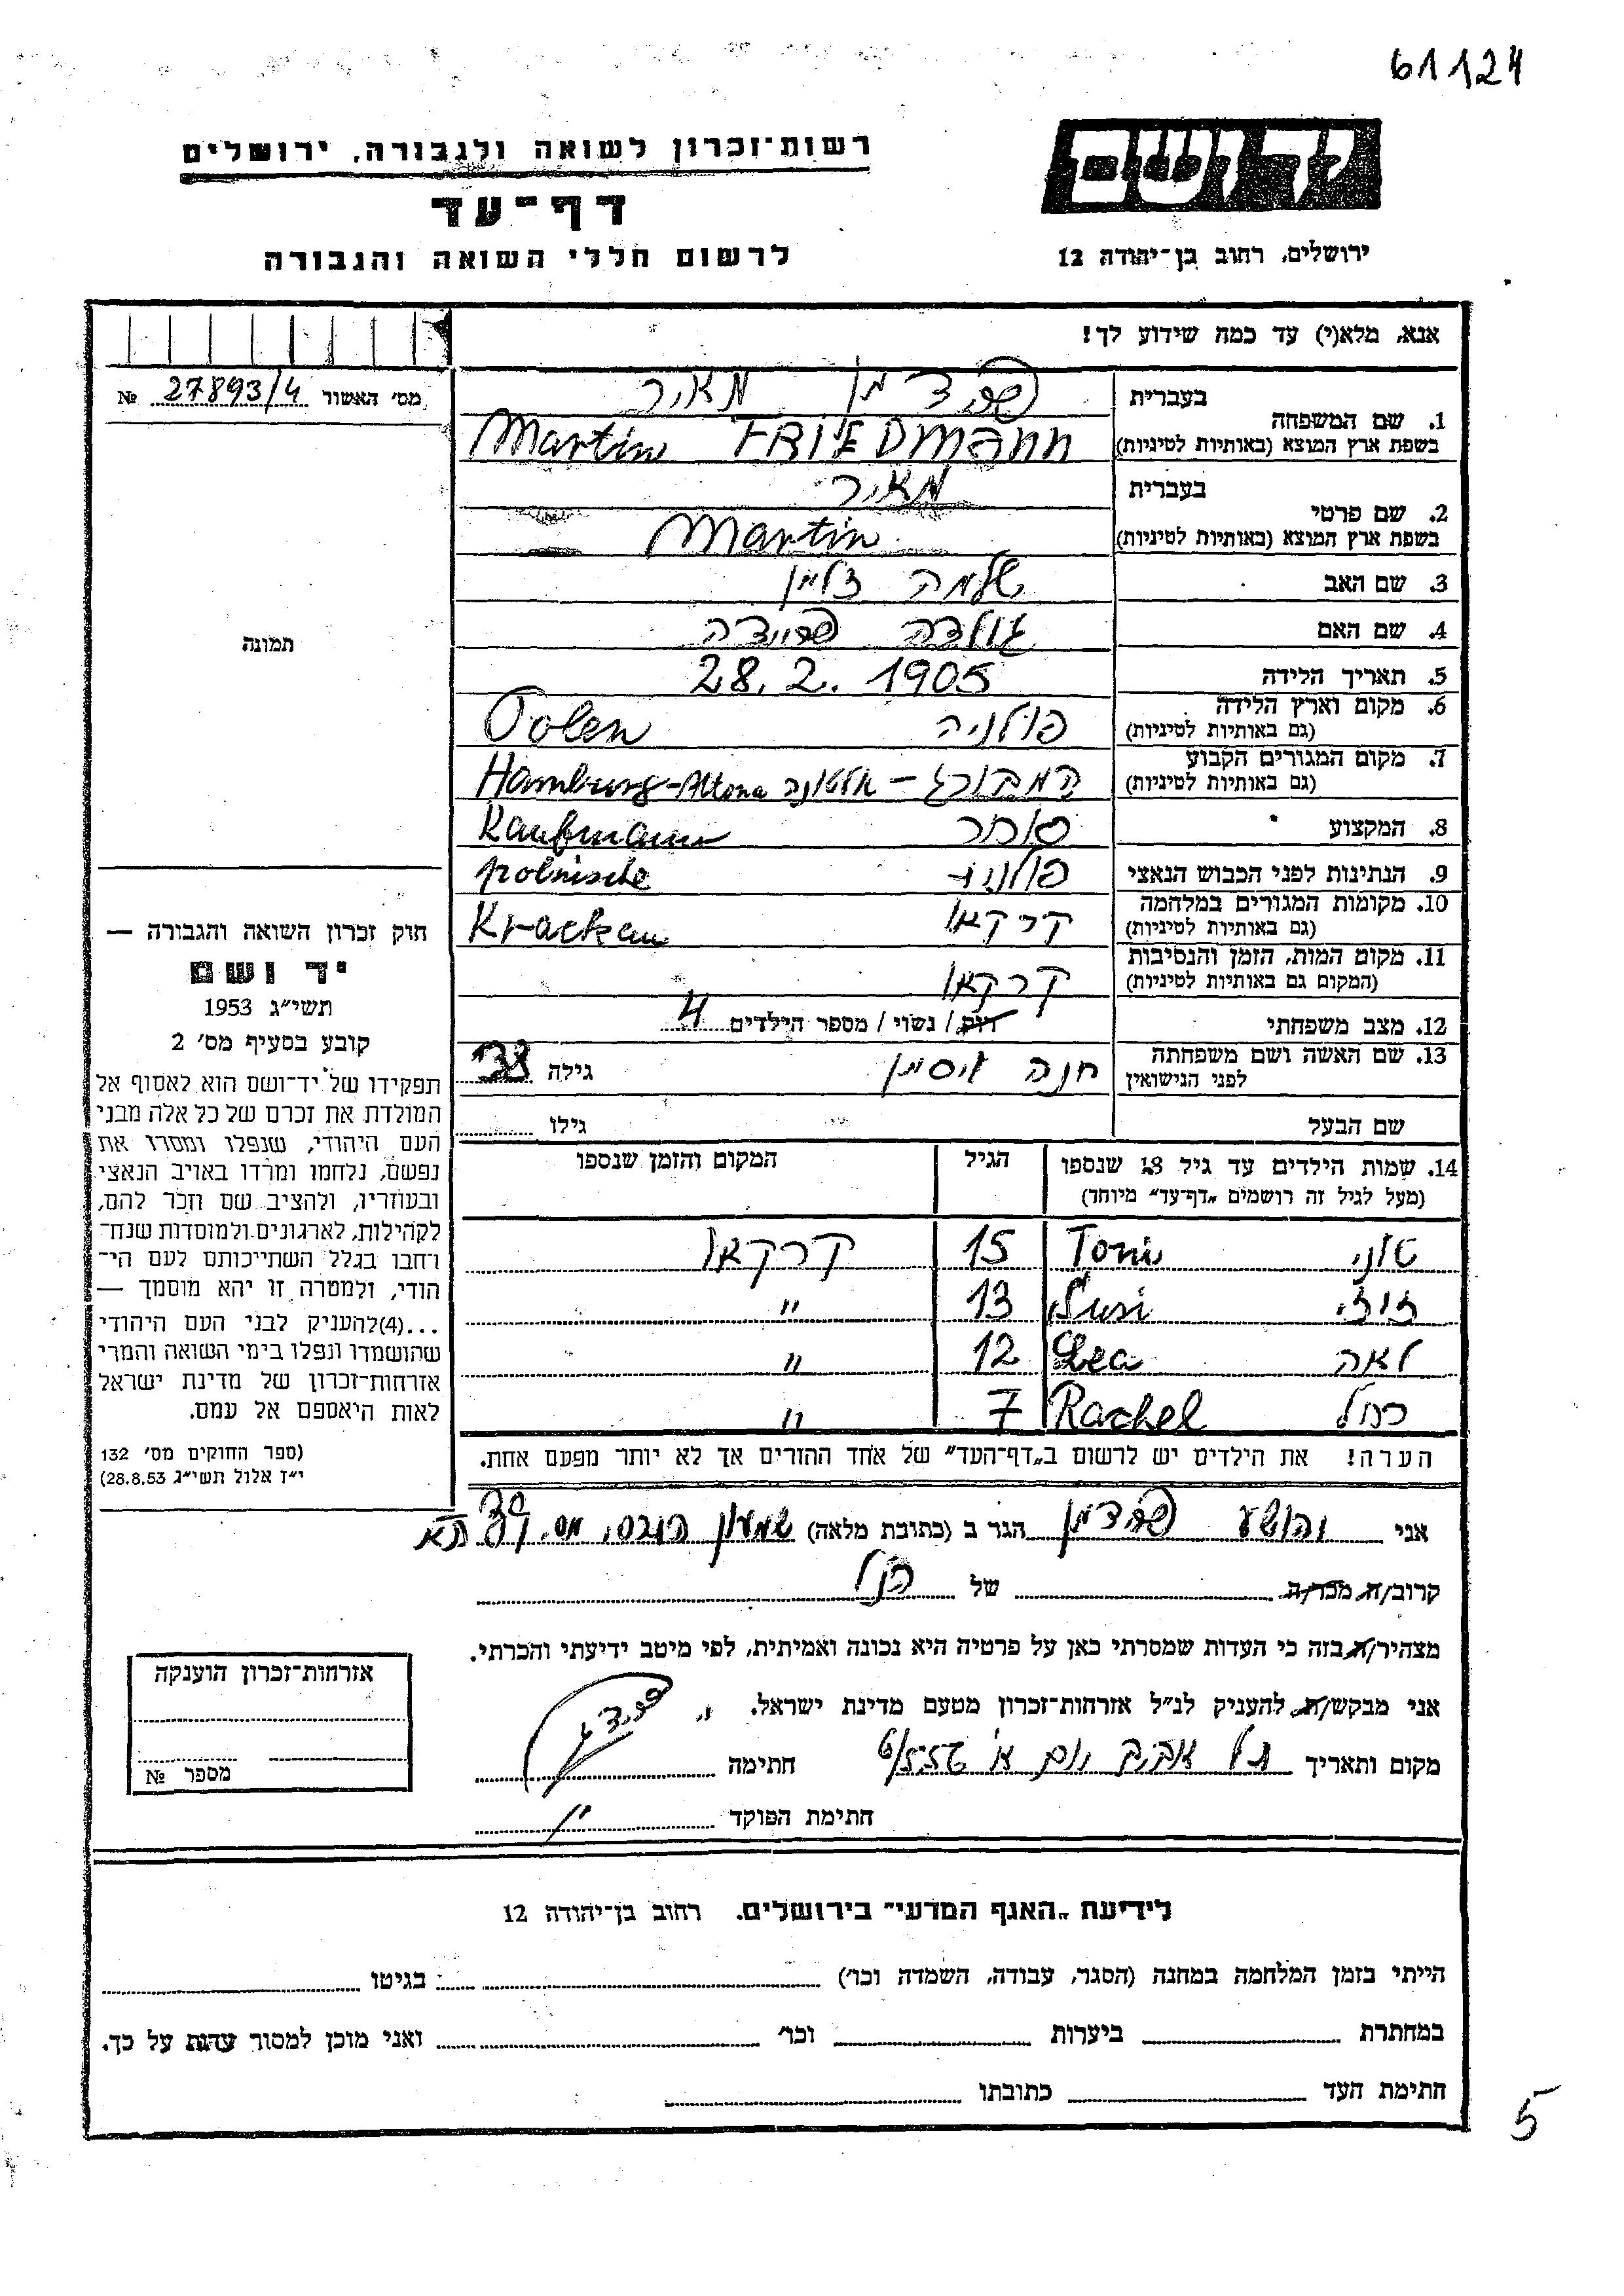 61124
יד ושם
רשות־זכרון לשואה ולגבורה, ירושלים
דף־עד
לרשום חללי השואה והגבורה
ירושלים, רחוב בן־יהודה 12
אנא, מלא(י) עד כמה שידוע לך!
מס׳ האשור 27893/4 №
תמונה
1. שם המשפחה
בעברית פרידמן מאיר
בשפת ארץ המוצא (באותיות לטיניות) Martin FRIEDMANN
2. שם פרטי
בעברית מאיר
בשפת ארץ המוצא (באותיות לטיניות) Martin
3. שם האב שלמה זלמן
4. שם האם גולדה פריידה
5. תאריך הלידה 28.2.1905
6. מקום וארץ הלידה
(גם באותיות לטיניות) פולניה Polen
7. מקום המגורים הקבוע
(גם באותיות לטיניות) המבורג – אלטונה Hamburg-Altona
8. המקצוע סוחר Kaufmann
9. הנתינות לפני הכבוש הנאצי פולנית polnische
10. מקומות המגורים במלחמה
(גם באותיות לטיניות) קרקאו Krackau
11. מקום המות, הזמן והנסיבות
(המקום גם באותיות לטיניות) קרקאו
12. מצב משפחתי רווק / נשוי / מספר הילדים 4
13. שם האשה ושם משפחתה
לפני הנישואין חנה גילה 38
שם הבעל גילו
14. שמות הילדים עד גיל 18 שנספו
(מעל לגיל זה רושמים „דף־עד״ מיוחד)
הגיל
המקום והזמן שנספו
טוני Toni 15 קרקאו
זוזי Susi 13 "
לאה Lea 12 "
רחל Rachel 7 "
הערה! את הילדים יש לרשום ב„דף־העד״ של אחד ההורים אך לא יותר מפעם אחת.
חוק זכרון השואה והגבורה —
יד ושם
תשי״ג 1953
קובע בסעיף מס׳ 2
תפקידו של יד־ושם הוא לאסוף אל
המולדת את זכרם של כל אלה מבני
העם היהודי, שנפלו ומסרו את
נפשם, נלחמו ומרדו באויב הנאצי
ובעוזריו, ולהציב שם וזכר להם,
לקהילות, לארגונים ולמוסדות שנח־
רחבו בגלל השתייכותם לעם הי־
הודי, ולמטרה זו יהא מוסמך —
...(4)להעניק לבני העם היהודי
שהושמדו ונפלו בימי השואה והמרי
אזרחות־זכרון של מדינת ישראל
לאות היאספם אל עמם.
(ספר החוקים מס׳ 132
י״ז אלול תשי״ג 28.8.53)
אני יהושע פרידמן הגר ב (כתובת מלאה) שמעון מס. תא
קרוב/ה מכר/ה של הנ״ל
מצהיר/ה בזה כי העדות שמסרתי כאן על פרטיה היא נכונה ואמיתית, לפי מיטב ידיעתי והכרתי.
אני מבקש/ת להעניק לנ״ל אזרחות־זכרון מטעם מדינת ישראל.
מקום ותאריך תל אביב יום א׳ חתימה
חתימת הפוקד
אזרחות־זכרון הוענקה
מספר №
לידיעת „האגף המדעי״ בירושלים, רחוב בן־יהודה 12
הייתי בזמן המלחמה במחנה (הסגר, עבודה, השמדה וכו׳) בגיטו
במחתרת ביערות וכו׳ ואני מוכן למסור עדות על כך.
חתימת העד כתובתו
5